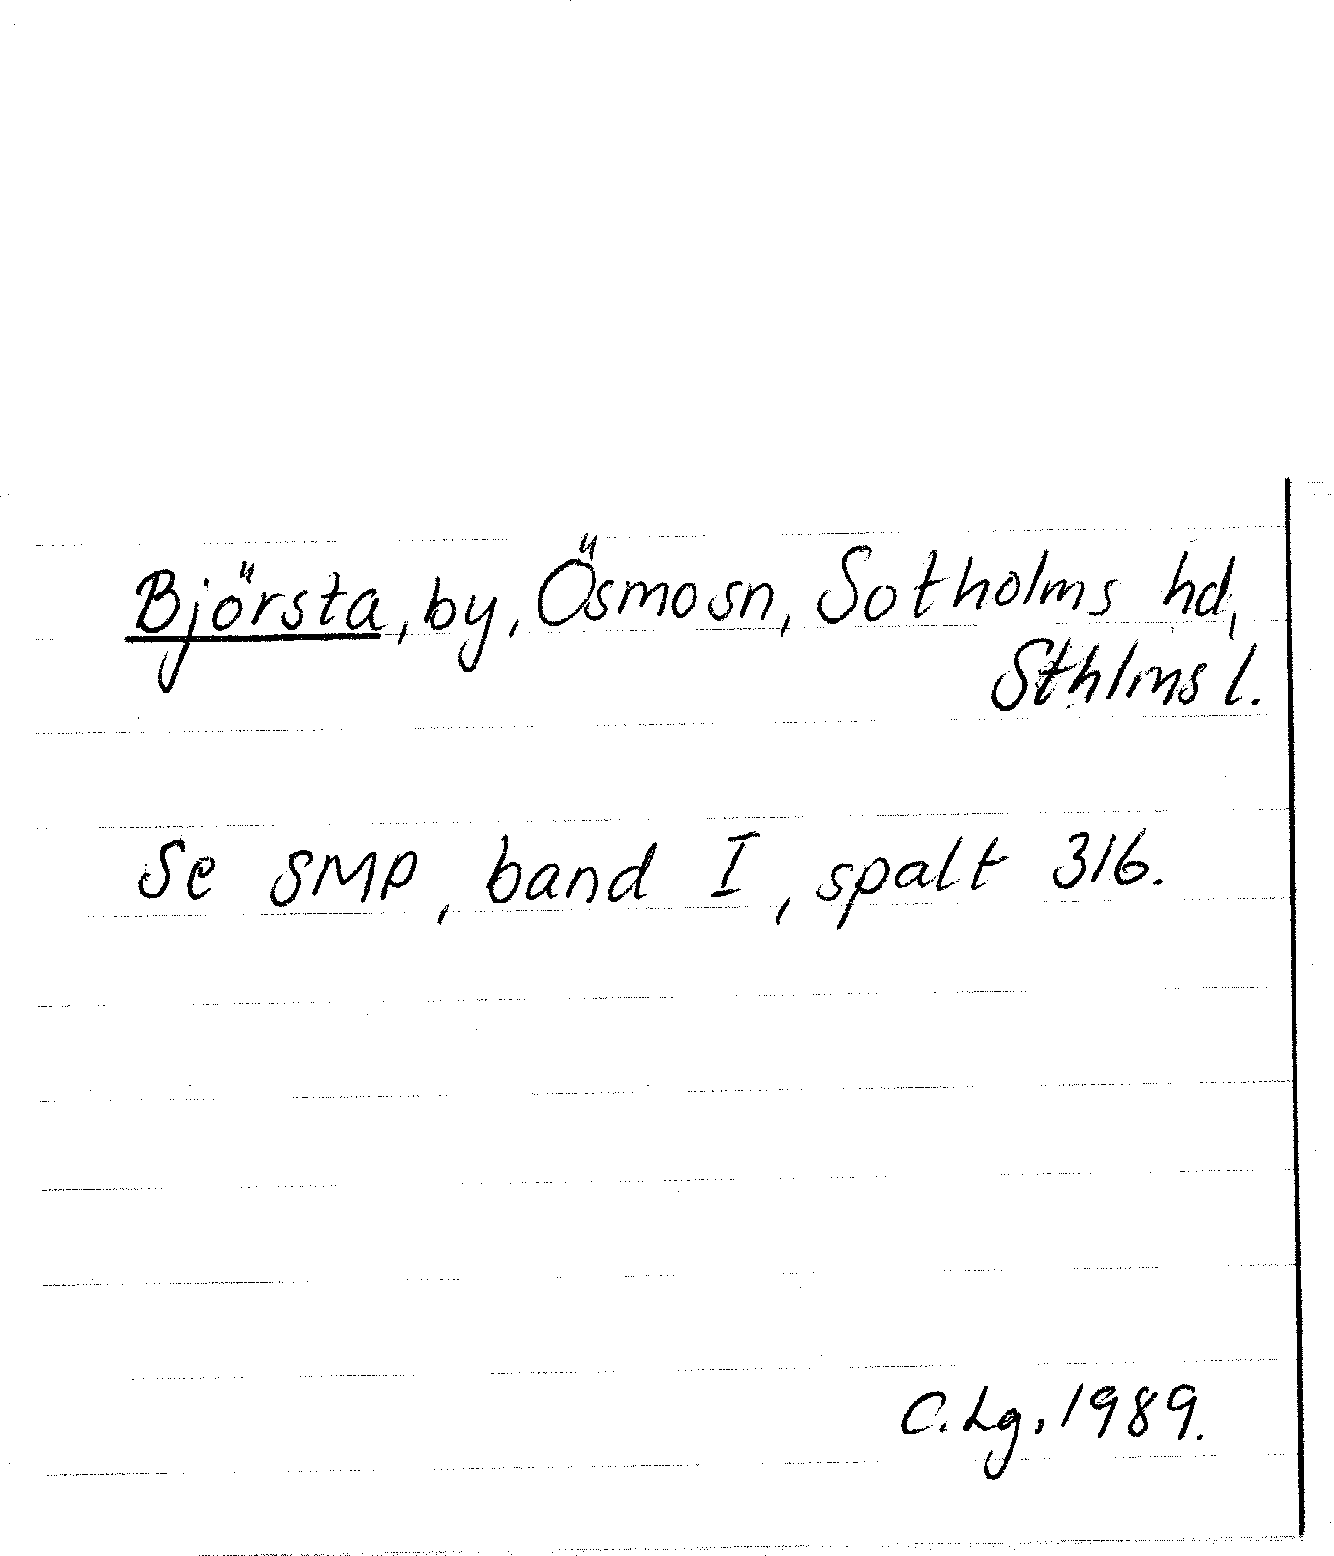 Björsta, by, Ösmo sn, Sotholms hd,
Sthlms l.
Se SMP, band I, spalt 316.
C. Lg. 1989.